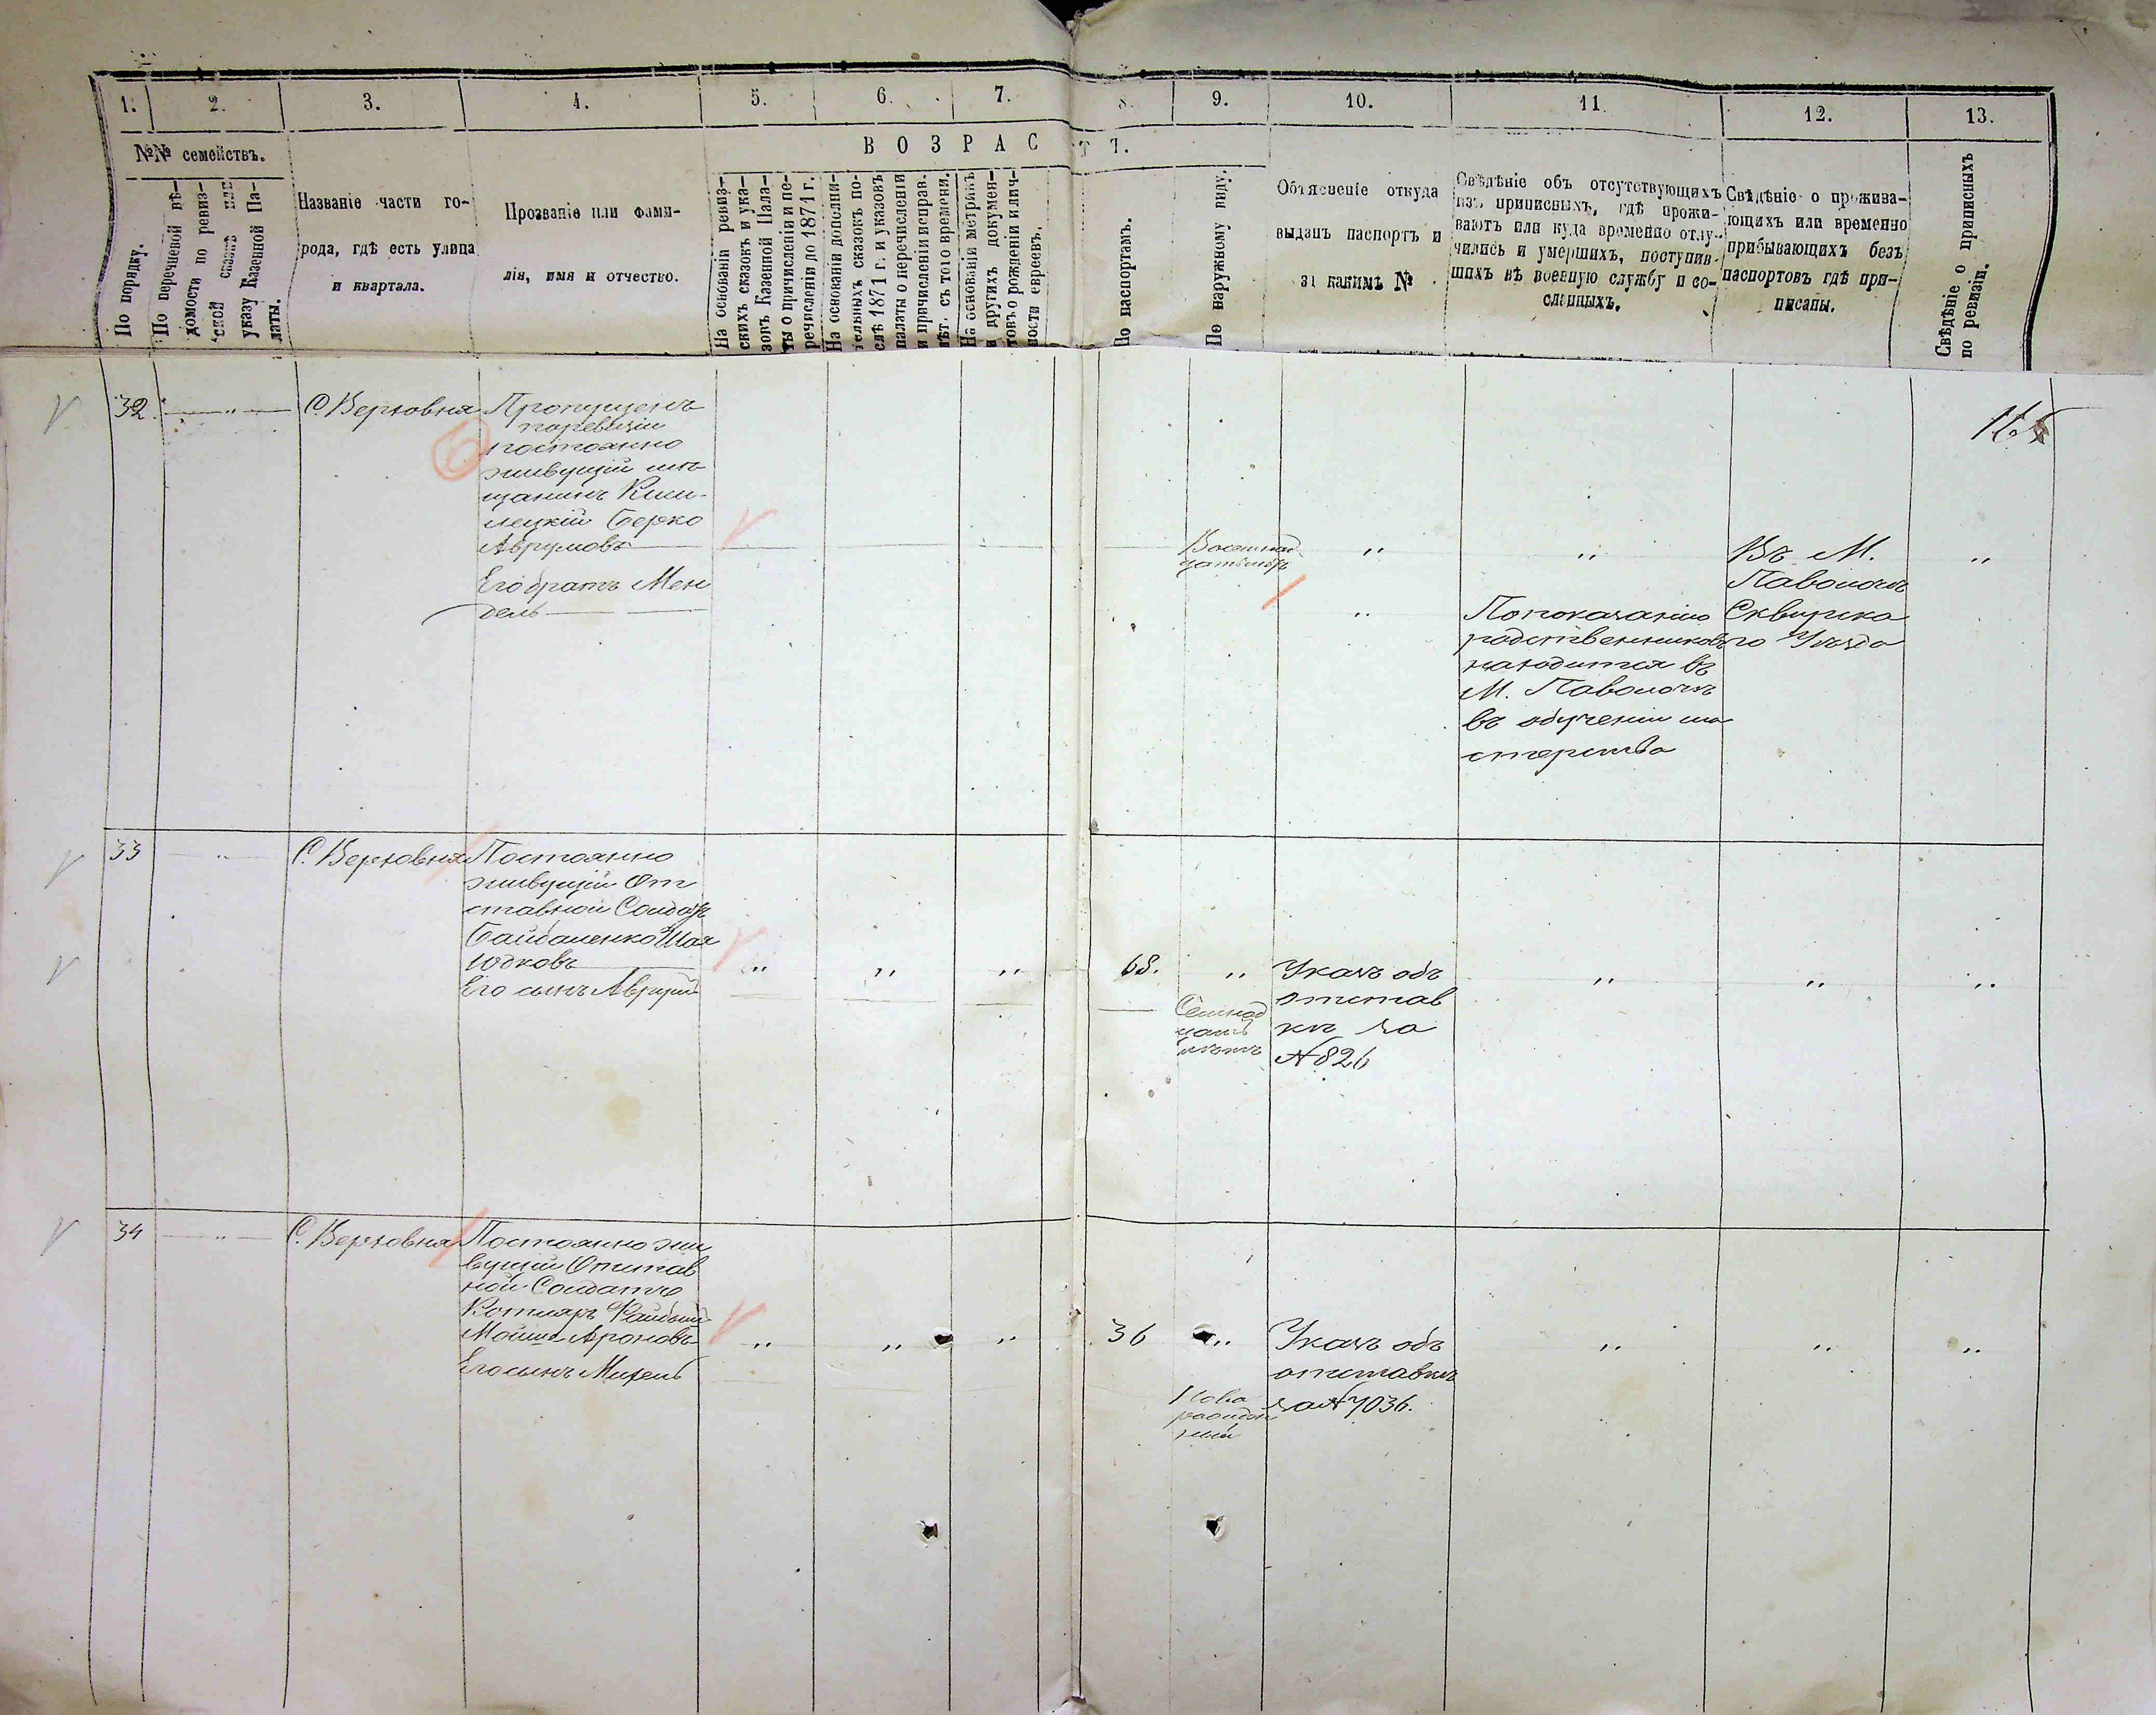 1. 2. 3. 4. 5. 6. 7. 8. 9. 10. 11. 12. 13.
№№ семействъ.
ВОЗРАСТЪ.
По порядку.
По перечневой вѣ-
домости по ревиз-
ской сказкѣ или
указу Казенной Па-
латы.
Названіе части го-
рода, гдѣ есть улица
и квартала.
Прозваніе или фами-
лія, имя и отчество.
На основаніи ревиз-
скихъ сказокъ и ука-
зовъ Казенной Пала-
ты о причисленіи и пе-
речисленіи до 1871 г.
На основаніи дополни-
тельныхъ сказокъ по-
слѣ 1871 г. и указовъ
палаты о перечисленіи
и причисленіи исправ.
лѣт. съ того времени.
На основаніи метрикъ
и другихъ докумен-
товъ о рожденіи и лич-
ности евреевъ.
По паспортамъ.
По наружному виду.
Объясненіе откуда
выданъ паспортъ и
за какимъ №
Свѣдѣніе объ отсутствующихъ
изъ приписныхъ, гдѣ прожи-
ваютъ или куда временно отлу-
чились и умершихъ, поступив-
шихъ въ военную службу и со-
сланныхъ.
Свѣдѣніе о прожива-
ющихъ или временно
прибывающихъ безъ
паспортовъ гдѣ при-
писаны.
Свѣдѣніе о приписныхъ
по ревизіи.
32. " С. Верховня
Пропущенъ
по ревизіи
постоянно
живущій мѣ-
щанинъ
Берко
Аврумовъ
Его братъ Мен
дель
" "
Въ М.
Паволочь
Сквирска
го Уѣзда
"
"
По показанію
родственниковъ
находится въ
М. Паволочѣ
въ обученіи ма
стерства
33 " С. Верховня
Постоянно
живущій От
ставной Солдатъ
Шая
Юдковъ
Его сынъ Аврумъ
" " " 68. "
Семнад
цать
лѣтъ
Указъ объ
отстав
кѣ за
№ 826
" " "
34 " С. Верховня
Постоянно жи
вущій Отстав
ной Солдатъ
Котляръ
Мойше Ароновъ
Его сынъ Михель
" " " 36 "
Ново
рожден
ный
Указъ объ
отставкѣ
за № 7036.
" " "